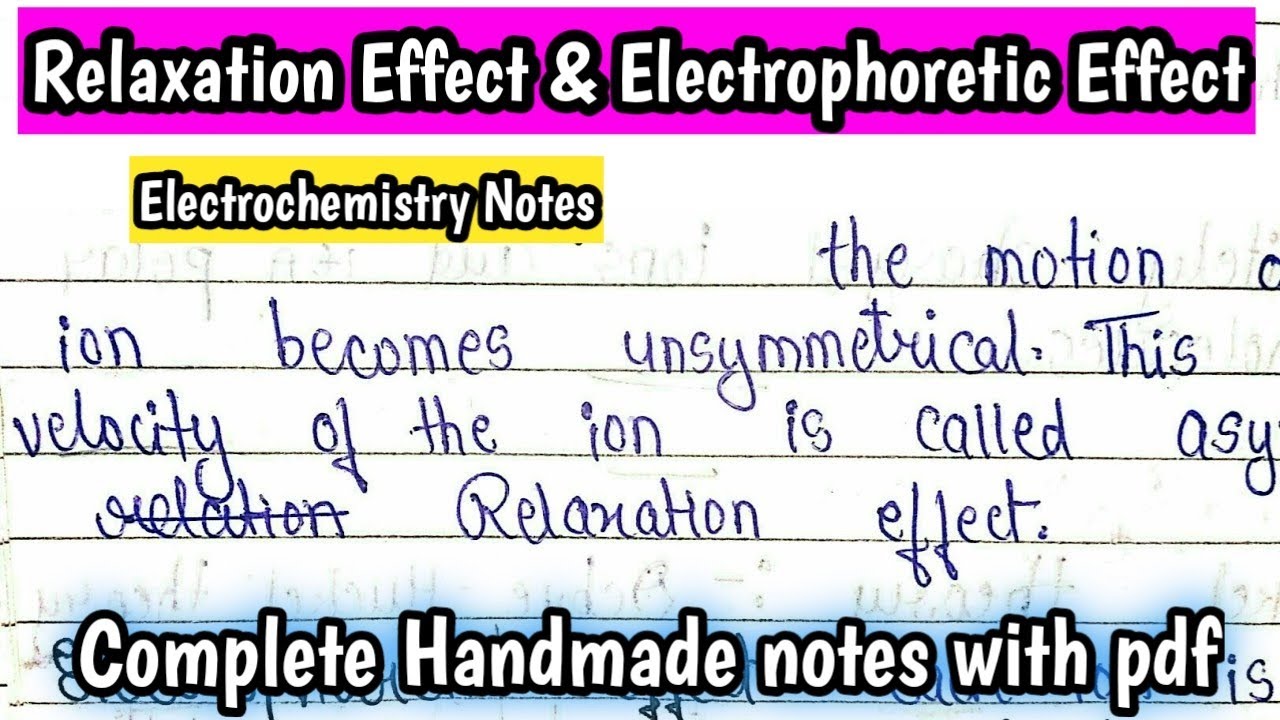 Relaxation Effect & Electrophoretic Effect
Electrochemistry Notes
the motion
ion becomes unsymmetrical. This
velocity of the ion is called asy
relation Relaxation effect.
Complete Handmade notes with pdf
is